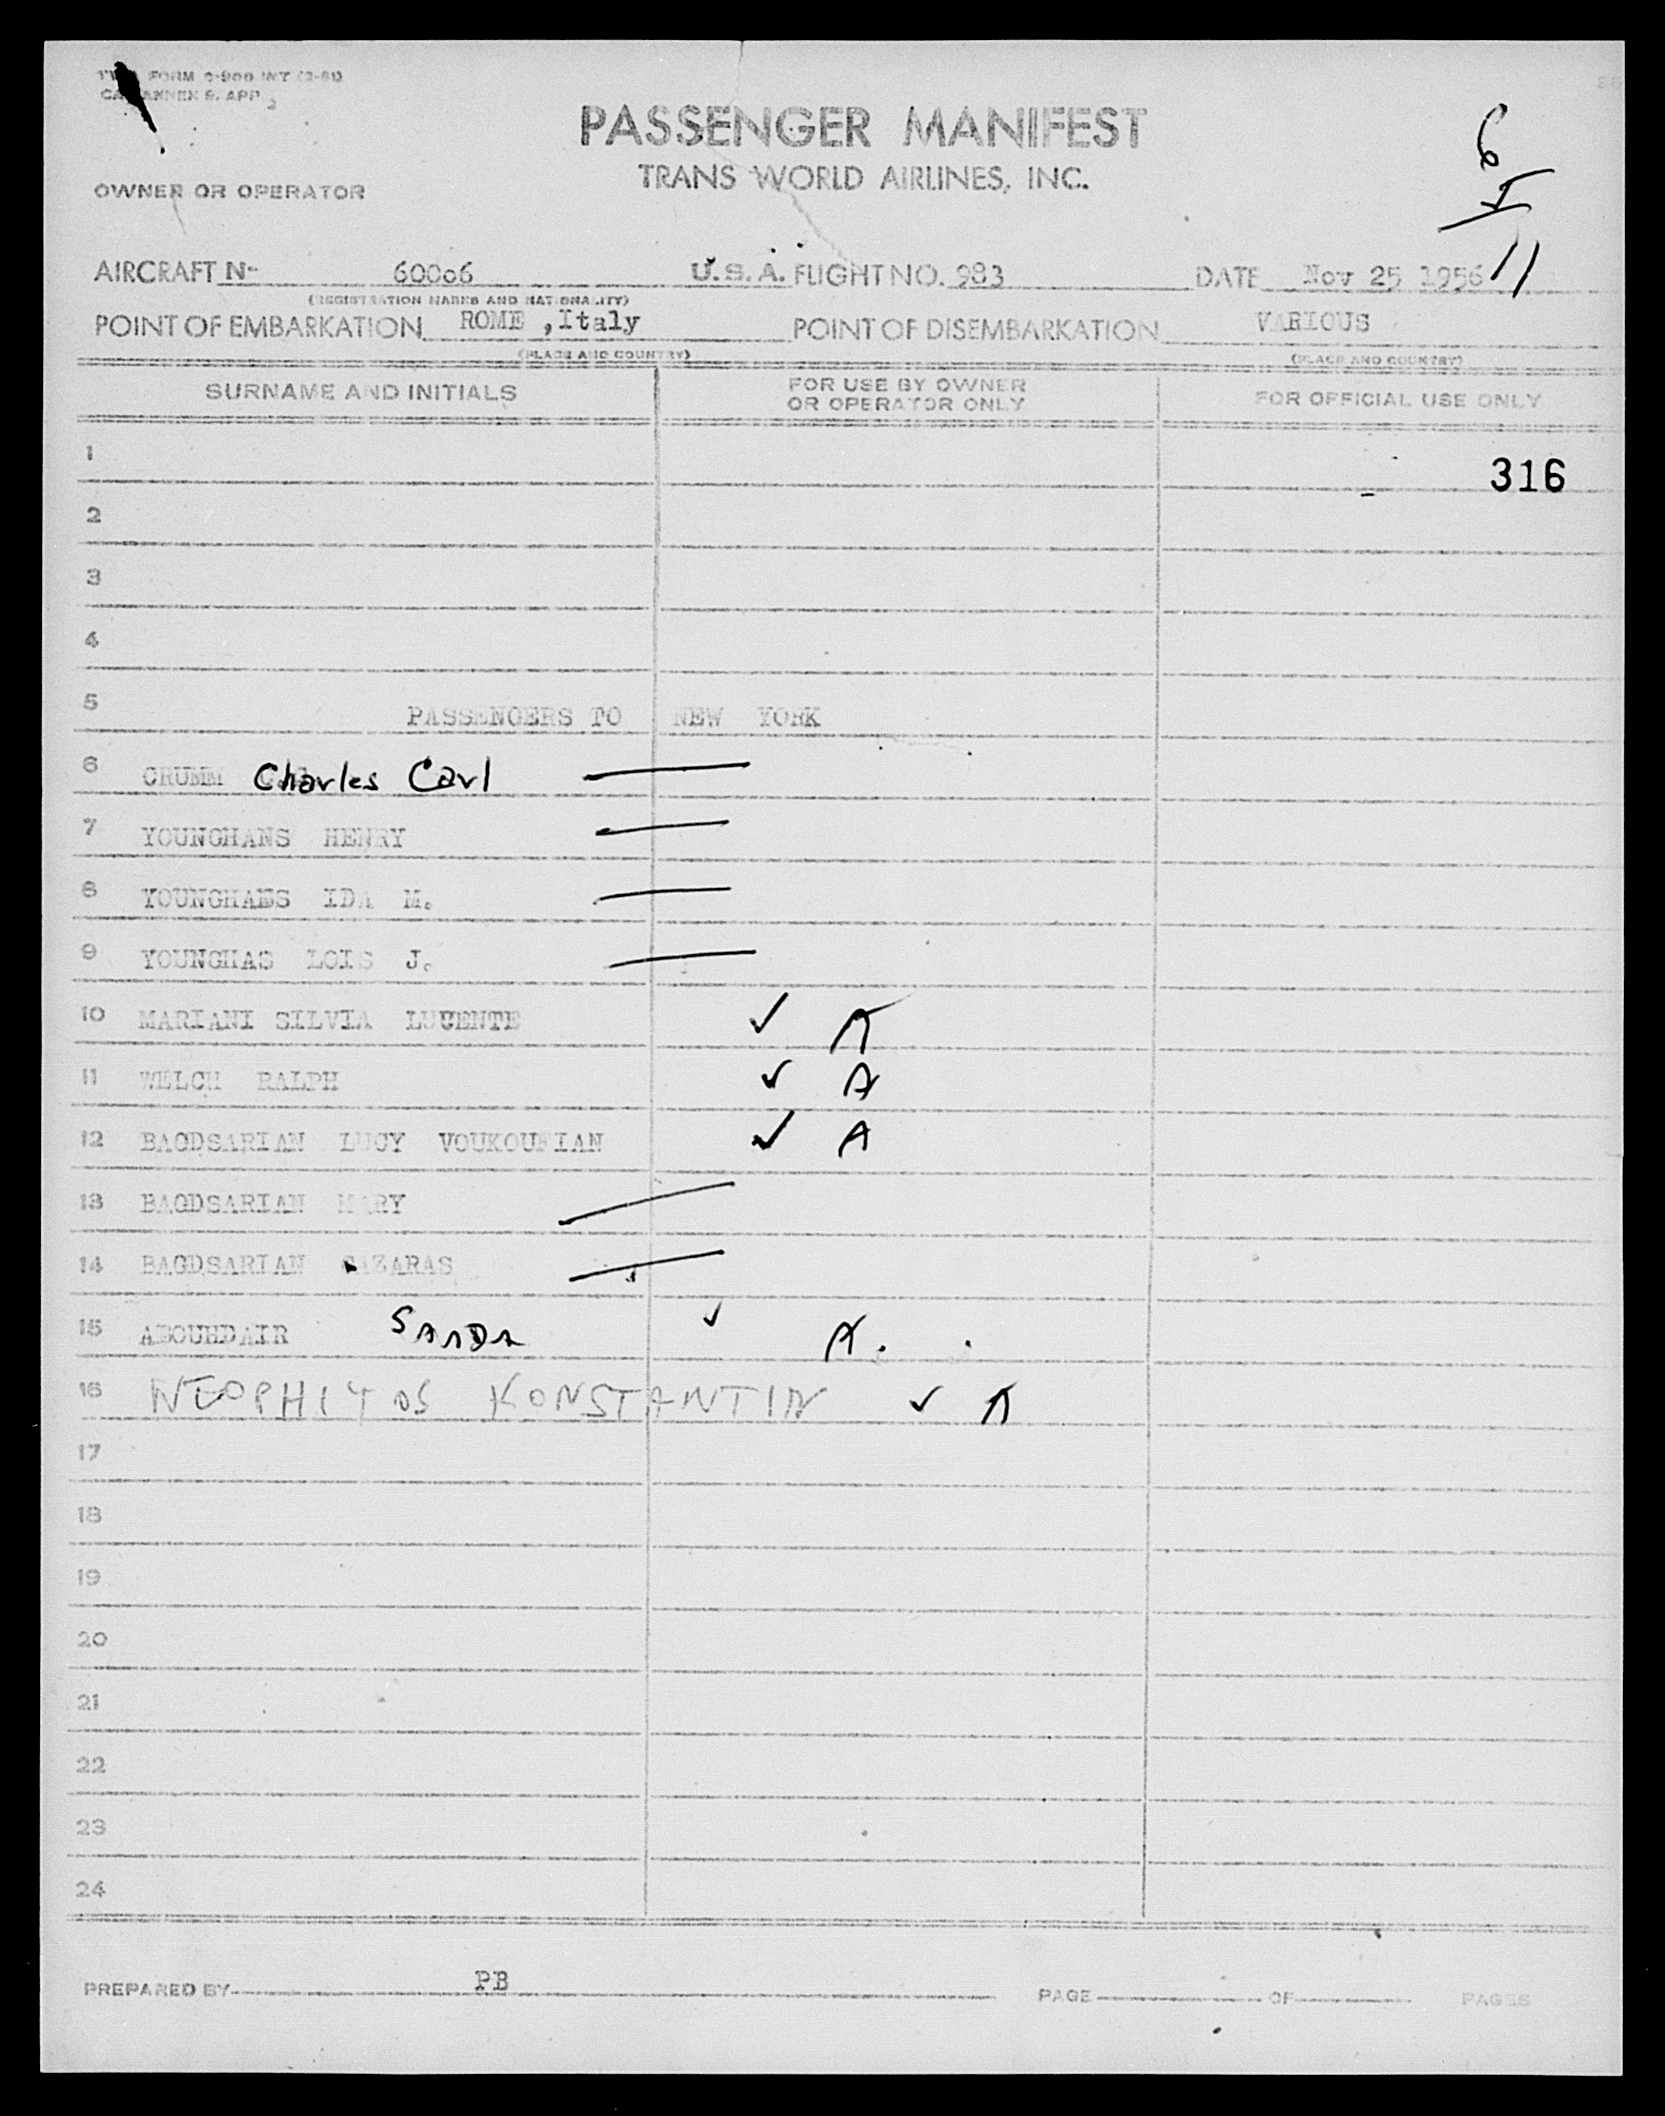 TWA FORM
PASSENGER MANIFEST
TRANS WORLD AIRLINES, INC.
6
5
11
OWNER OR OPERATOR
AIRCRAFT No 60006 U.S.A. FLIGHT NO. 983 DATE Nov 25 1956
(REGISTRATION MARKS AND NATIONALITY)
POINT OF EMBARKATION ROME ,Italy POINT OF DISEMBARKATION VARIOUS
(PLACE AND COUNTRY) (PLACE AND COUNTRY)
SURNAME AND INITIALS FOR USE BY OWNER OR OPERATOR ONLY FOR OFFICIAL USE ONLY
1 316
2
3
4
5 PASSENGERS TO NEW YORK
6 CRUMM Charles Carl
7 YOUNGHANS HENRY
8 YOUNGHANS IDA M.
9 YOUNGHAS LOIS J.
10 MARIANI SILVIA LUCENTE ✓ A
11 WELCH RALPH ✓ A
12 BAGDSARIAN LUCY ✓ A
13 BAGDSARIAN MARY
14 BAGDSARIAN
15 ABOUHDAIR SAADA ✓ A.
16 NEOPHITOS KONSTANTIN ✓ A
17
18
19
20
21
22
23
24
PREPARED BY PB PAGE OF PAGES